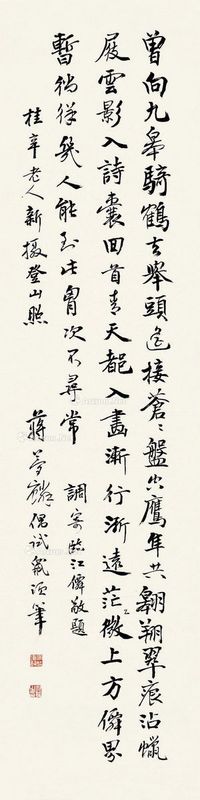 曾向九皋騎鶴去舉頭遙接蒼〻盤空鷹隼共翱翔翠痕沾蠟
屐雲影入詩囊回首青天都入畫漸行漸遠茫微上方僊界
暫徜徉幾人能到此胷次不尋常
調寄臨江僊敬題
桂辛老人新攝登山照
蔣夢麟偶試須筆